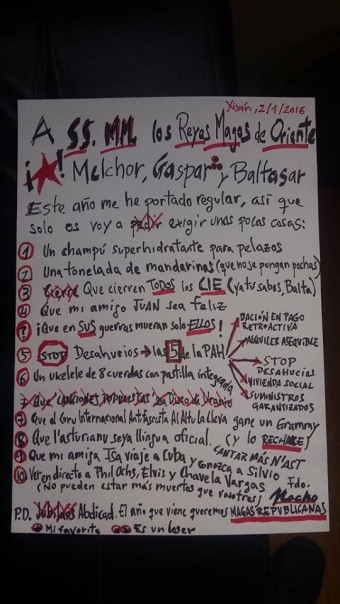 Xixón, 2/1/2016
A SS. MM. los Reyes Magos de Oriente
¡★! Melchor, Gaspar y Baltasar
Este año me he portado regular, así que
solo os voy a pedir exigir unas pocas cosas:
1 Un champú superhidratante para pelazos
2 Una tonelada de mandarinas (que no se pongan pochas)
3 Que cierren TODOS los CIE (ya tu sabes, Balta)
4 Que mi amigo JUAN sea feliz
? ¡Que en SUS guerras mueran solo ELLOS!
5 STOP Desahucios → las 5 de la PAH
DACIÓN EN PAGO
RETROACTIVA
ALQUILER ASEQUIBLE
STOP
DESAHUCIOS
VIVIENDA SOCIAL
SUMINISTROS
GARANTIZADOS
6 Un ukelele de 8 cuerdas con pastilla integrada
7 Que
7 Que al Gru Internacional Antifascista Al Altu la Lleva gane un Grammy
(y lo RECHACE)
8 Que l'asturianu seya llingua oficial.
CANTAR MÁS N'AST
9 Que mi amiga Isa viaje a Cuba y conozca a Silvio
10 Ver en directo a Phil Ochs, Elvis y Chavela Vargas
(No pueden estar más muertas que vosotros)
Fdo.
Nacho
P.D. Jubilaos Abdicad. El año que viene queremos MAGAS REPUBLICANAS
Mi favorito
Es un loser